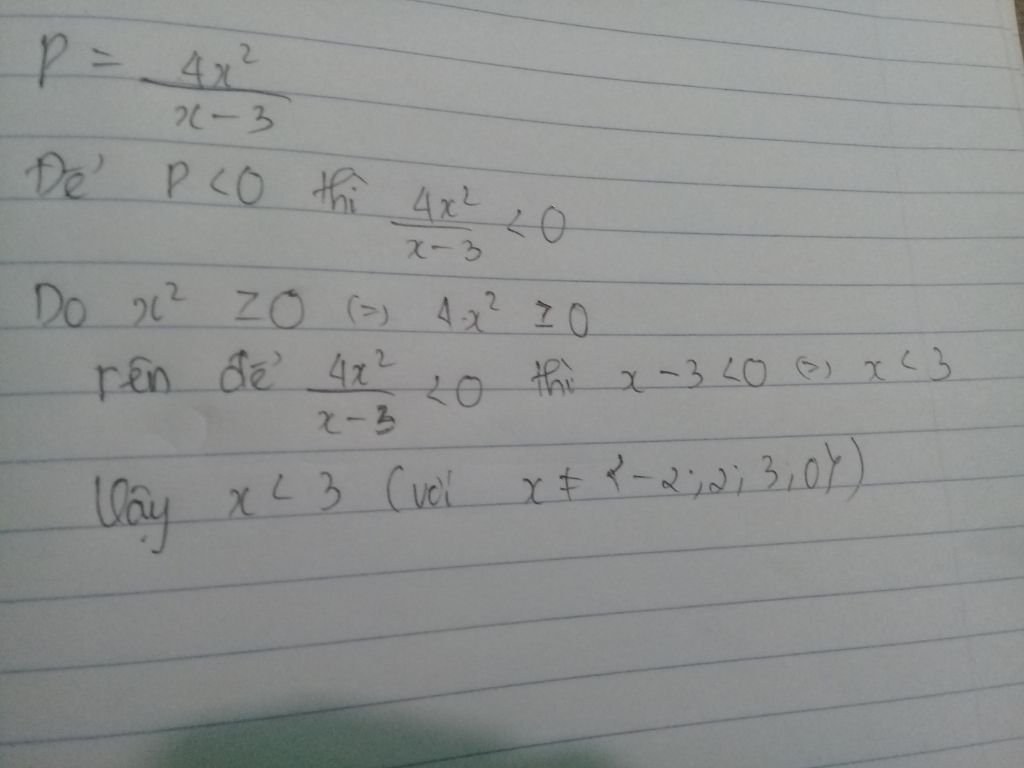 P = 4x² / x - 3
Để P < 0 thì 4x² / x - 3 < 0
Do x² ≥ 0 (=) 4x² ≥ 0
rên để 4x² / x - 3 < 0 thì x - 3 < 0 (=) x < 3
Vậy x < 3 (với x ≠ {-2; 2; 3; 0})